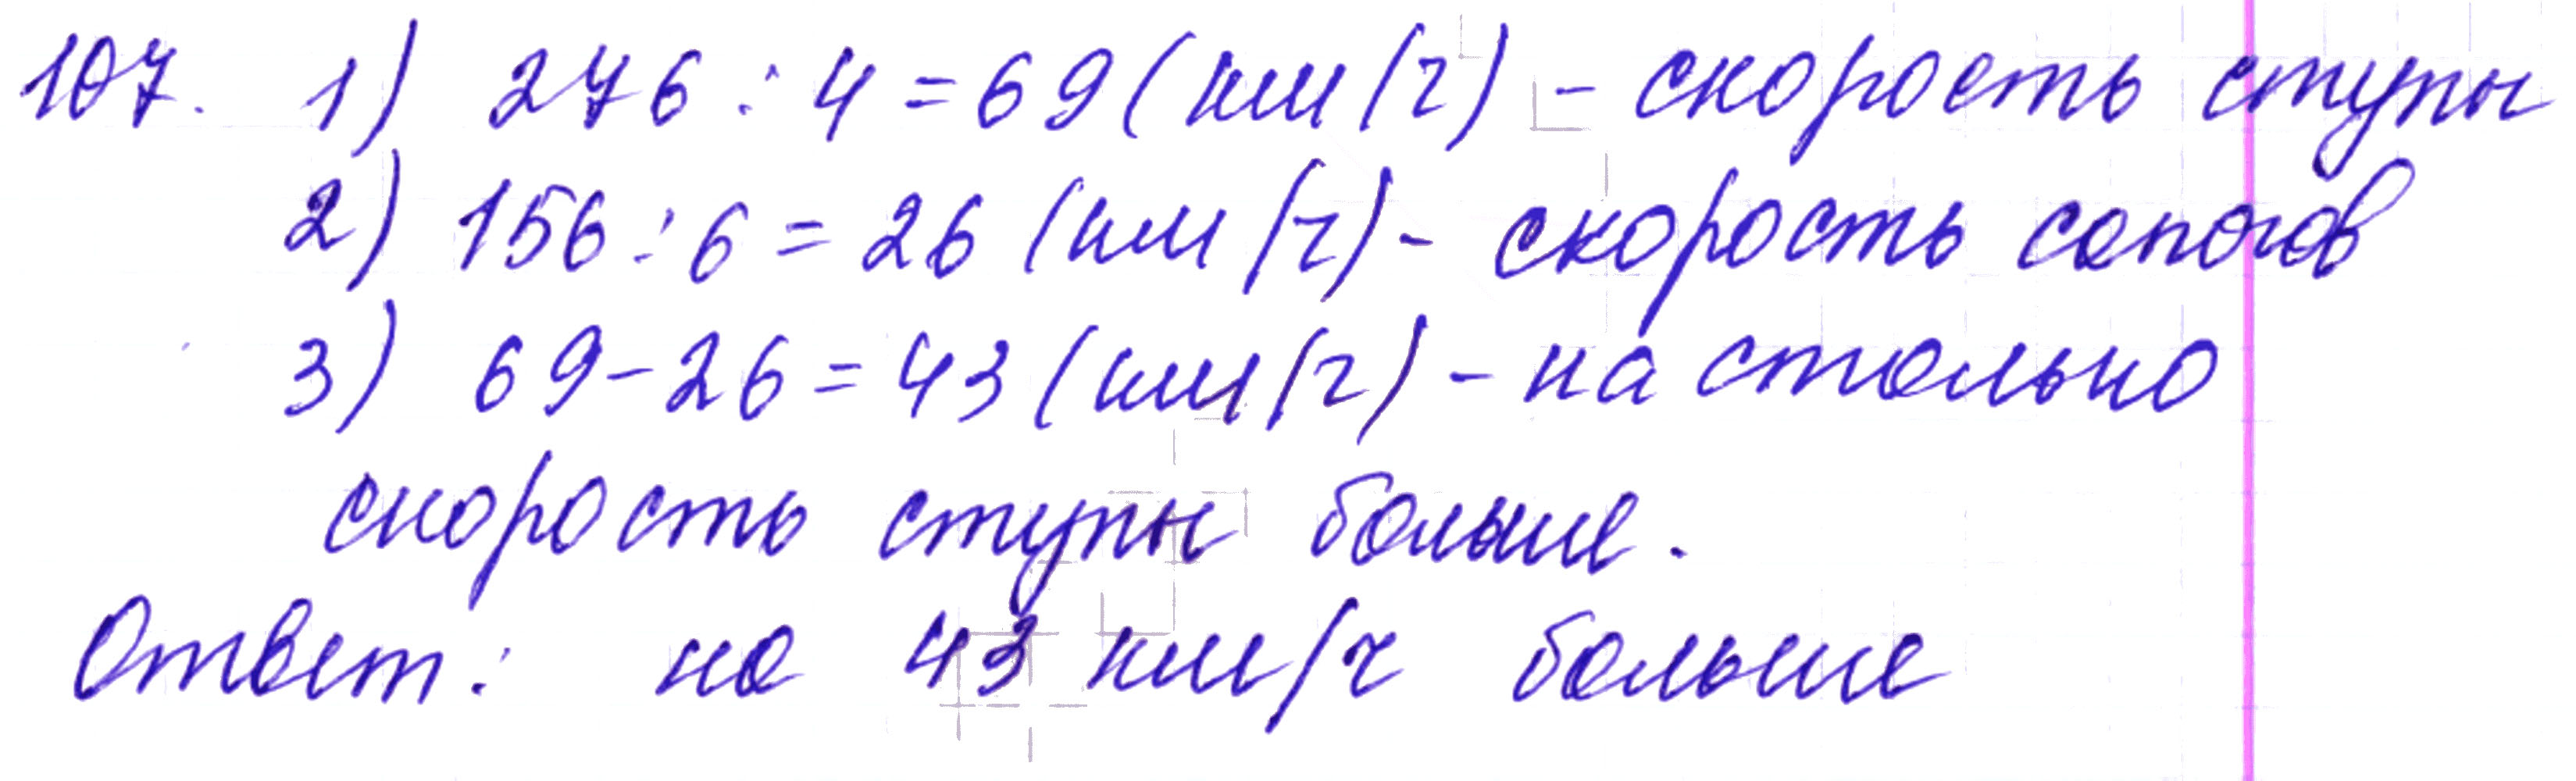 107. 1) 276 : 4 = 69 (км/ч) - скорость ступы
2) 156 : 6 = 26 (км/ч) - скорость сапогов
3) 69 - 26 = 43 (км/ч) - на столько
скорость ступы больше.
Ответ: на 43 км/ч больше